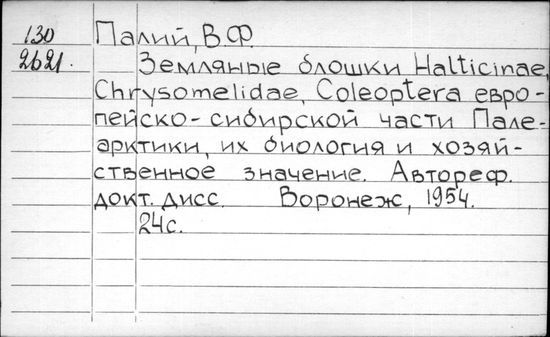 130 Палий, В.Ф.
2621. Земляные блошки Halticinae,
Chrysomelidae, Coleoptera евро-
пейско-сибирской части Пале-
арктики, их биология и хозяй-
ственное значение. Автореф.
докт. дисс. Воронеж, 1954.
24с.